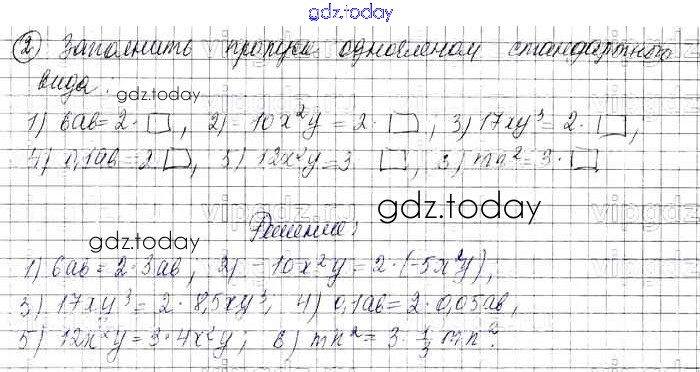 gdz.today
② Заполнить пропуск одночленом стандартного
вида:
gdz.today
1) 6ab = 2 · □, 2) -10x²y = 2 · □; 3) 17xy³ = 2 · □;
4) 0,1ab = 2 □, 5) 12x²y = 3 □, 6) mn² = 3 · □
gdz.today
gdz.today
Решение:
1) 6ab = 2 · 3ab; 2) -10x²y = 2 · (-5x²y),
3) 17xy³ = 2 · 8,5xy³, 4) 0,1ab = 2 · 0,05ab,
5) 12x²y = 3 · 4x²y; 6) mn² = 3 · 1/3 mn².